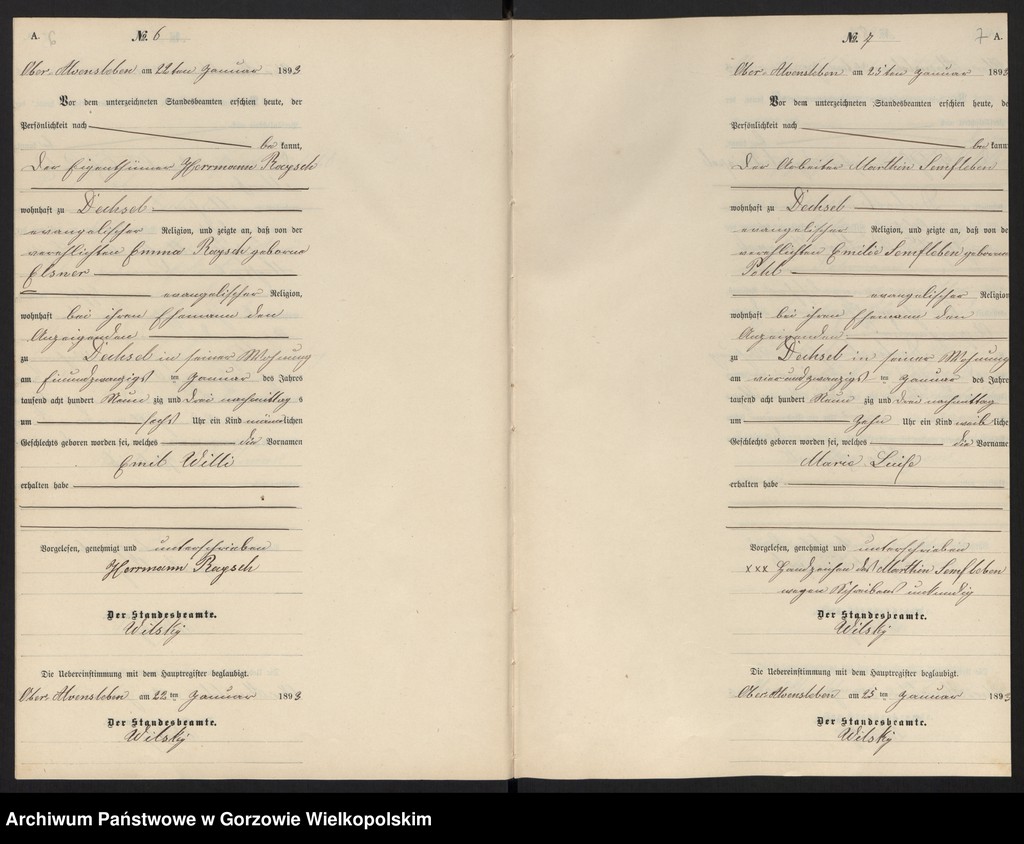 A.
No. 6
Ober-Alvensleben am 22ten Januar 1893
Vor dem unterzeichneten Standesbeamten erschien heute, der
Persönlichkeit nach
be kannt,
der Eigenthümer Herrmann Raysch
wohnhaft zu Dechsel
evangelischer Religion, und zeigte an, daß von der
verehlichten Emma Raysch geborne
Elsner
evangelischer Religion,
wohnhaft bei ihren Ehemann den
Anzeigenden
zu Dechsel in seiner Wohnung
am Einundzwanzigst ten Januar des Jahres
tausend acht hundert Neun zig und drei nachmittag s
um sechs Uhr ein Kind männlichen
Geschlechts geboren worden sei, welches die Vornamen
Emil Willi
erhalten habe
Vorgelesen, genehmigt und unterschrieben
Herrmann Raysch
Der Standesbeamte.
Wilsky
Die Uebereinstimmung mit dem Hauptregister beglaubigt.
Ober-Alvensleben am 22 ten Januar 1893
Der Standesbeamte.
Wilsky
No. 7
7 A.
Ober-Alvensleben am 25ten Januar 1893
Vor dem unterzeichneten Standesbeamten erschien heute, de
Persönlichkeit nach
be kann
der Arbeiter Marthin Semfleben
wohnhaft zu Dechsel
evangelischer Religion, und zeigte an, daß von de
verehlichten Emilie Semfleben geborne
Pohl
evangelischer Religion
wohnhaft bei ihren Ehemann den
Anzeigenden
zu Dechsel in seiner Wohnung
am vierundzwanzigst ten Januar des Jahre
tausend acht hundert Neun zig und drei nachmittag
um Zehn Uhr ein Kind weib liche
Geschlechts geboren worden sei, welches die Vorname
Marie Luise
erhalten habe
Vorgelesen, genehmigt und unterschrieben
xxx Handzeichen des Marthin Semfleben
wegen Schreibens unkundig
Der Standesbeamte.
Wilsky
Die Uebereinstimmung mit dem Hauptregister beglaubigt.
Ober-Alvensleben am 25 ten Januar 1893
Der Standesbeamte.
Wilsky
Archiwum Państwowe w Gorzowie Wielkopolskim